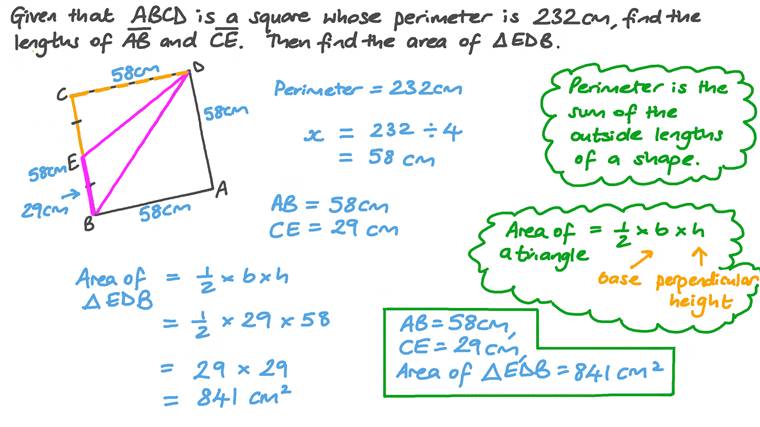 Given that ABCD is a square whose perimeter is 232cm, find the
lengths of AB and CE. Then find the area of △EDB.
58cm
D
C
58cm
E
58cm
29cm
A
B
58cm
Perimeter = 232cm
x = 232 ÷ 4
= 58 cm
AB = 58cm
CE = 29 cm
Perimeter is the
sum of the
outside lengths
of a shape.
Area of = 1/2 × b × h
a triangle
base perpendicular
height
Area of = 1/2 × b × h
△EDB
= 1/2 × 29 × 58
= 29 × 29
= 841 cm²
AB = 58cm,
CE = 29cm,
Area of △EDB = 841 cm²